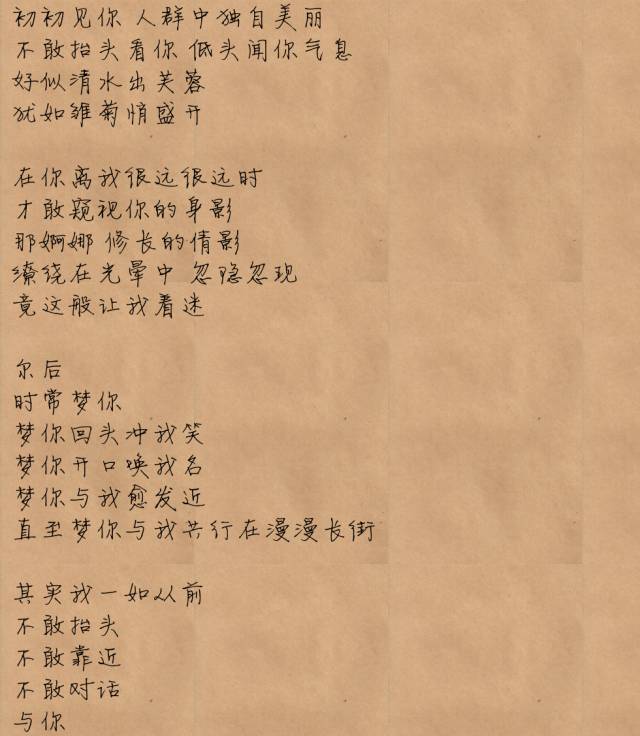 初初见你 人群中独自美丽
不敢抬头看你 低头闻你气息
好似清水出芙蓉
犹如雏菊悄盛开
在你离我很远很远时
才敢窥视你的身影
那婀娜 修长的倩影
缭绕在光晕中 忽隐忽现
竟这般让我着迷
尔后
时常梦你
梦你回头冲我笑
梦你开口唤我名
梦你与我愈发近
直至梦你与我共行在漫漫长街
其实我一如从前
不敢抬头
不敢靠近
不敢对话
与你